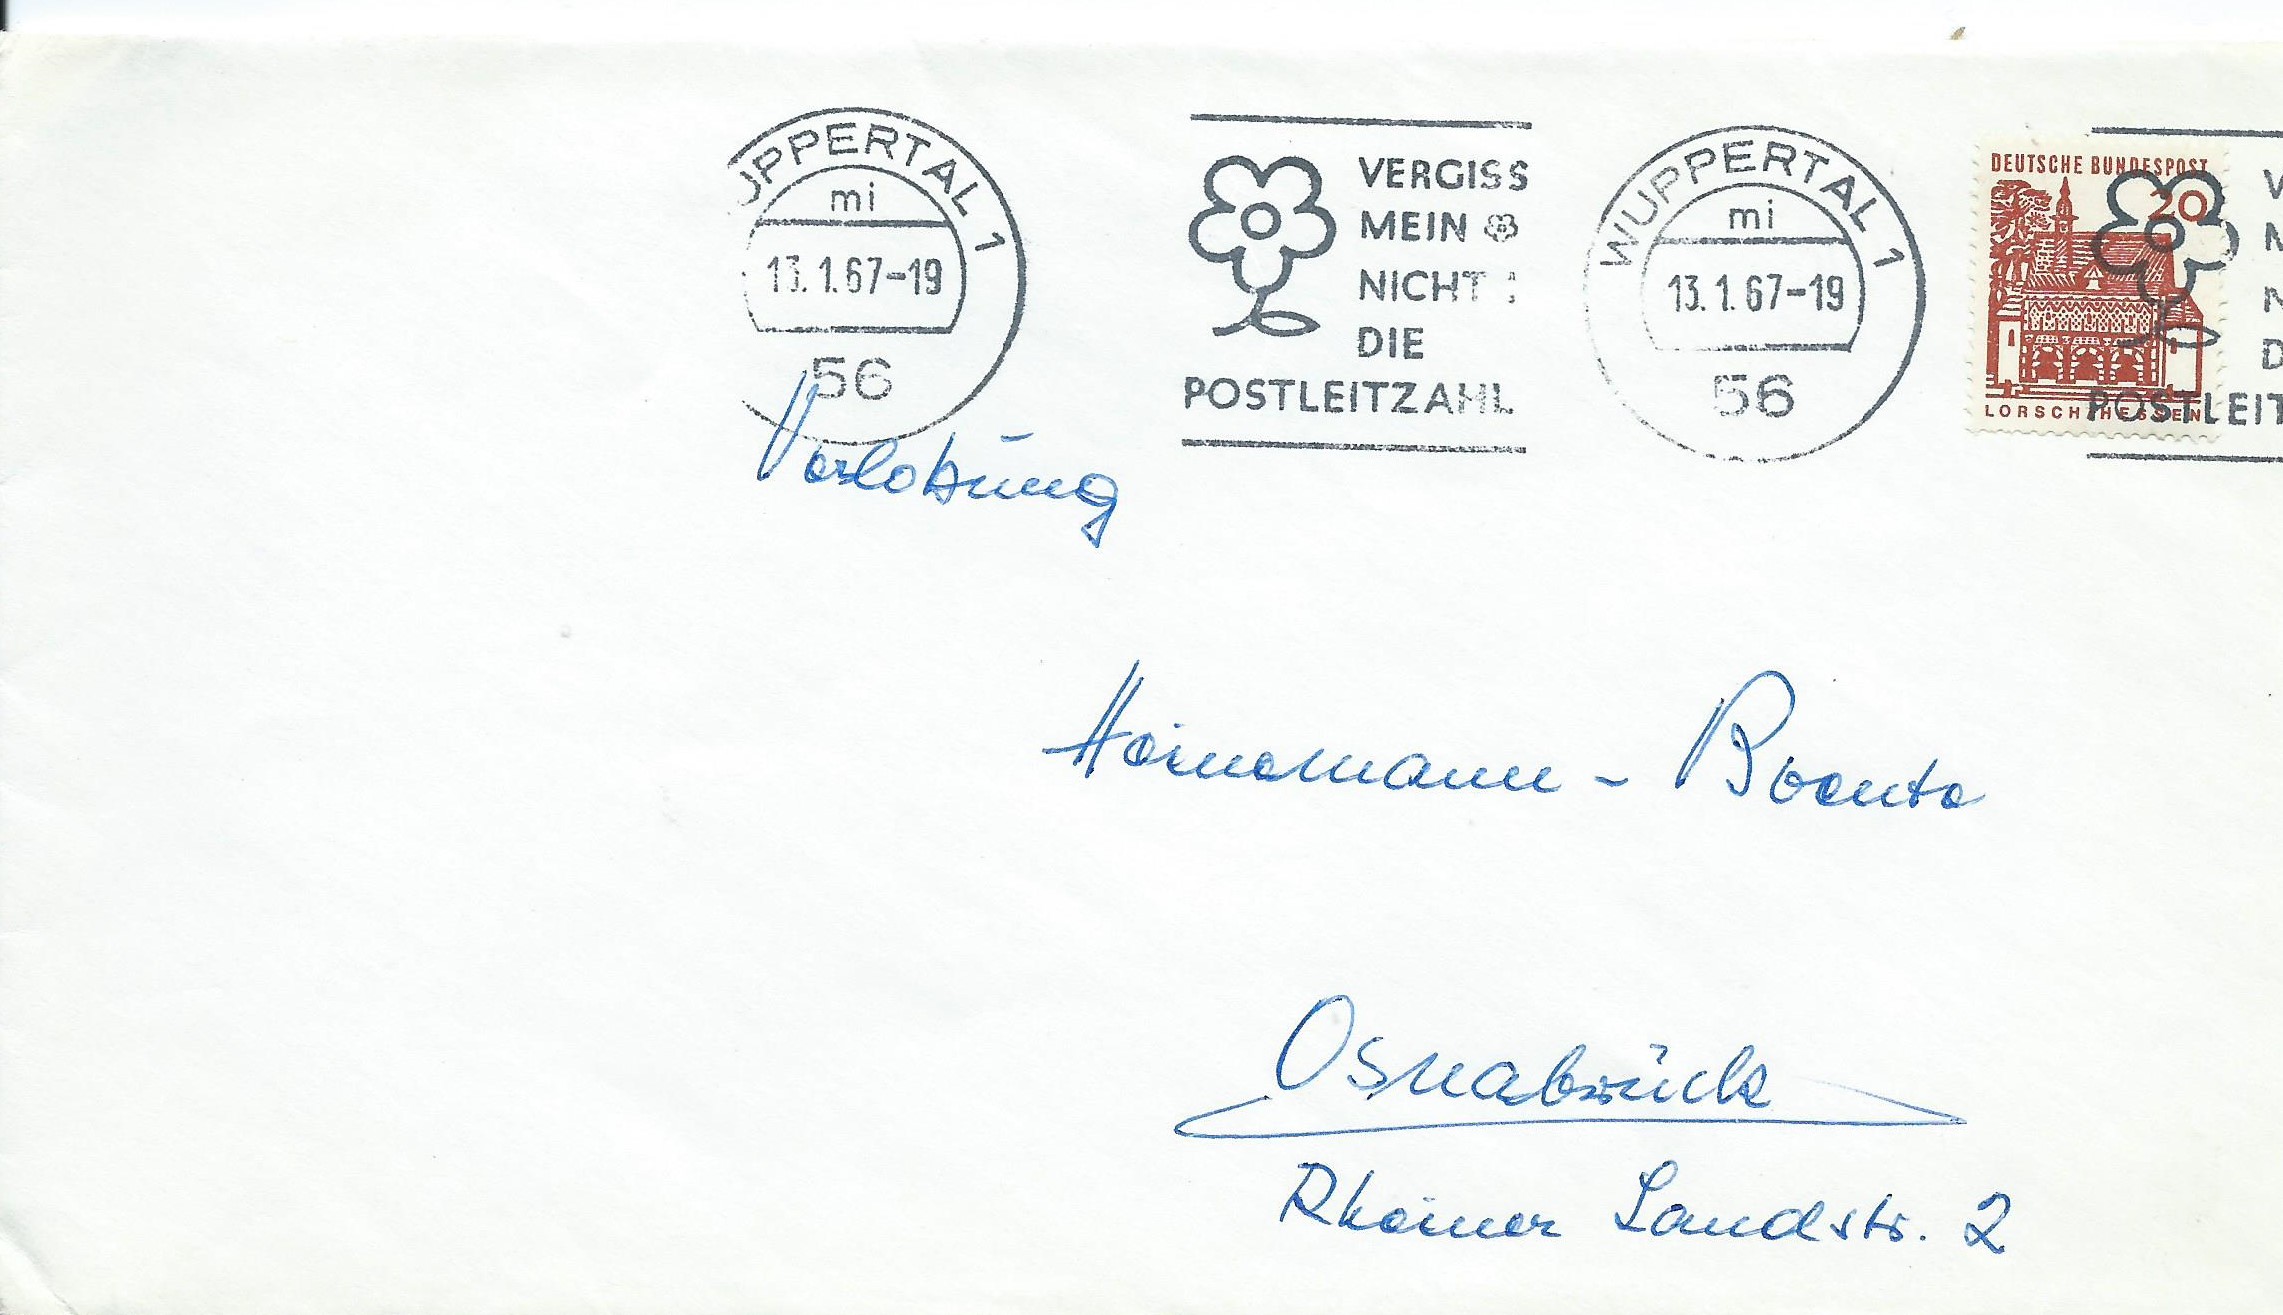 WUPPERTAL 1
mi
13.1.67-19
56
VERGISS
MEIN
NICHT
DIE
POSTLEITZAHL
WUPPERTAL 1
mi
13.1.67-19
56
DEUTSCHE BUNDESPOST
20
LORSCH/HESSEN
V
M
N
D
POSTLEIT
Verlobung
Heinemann - Boente
Osnabrück
Rheiner Landstr. 2